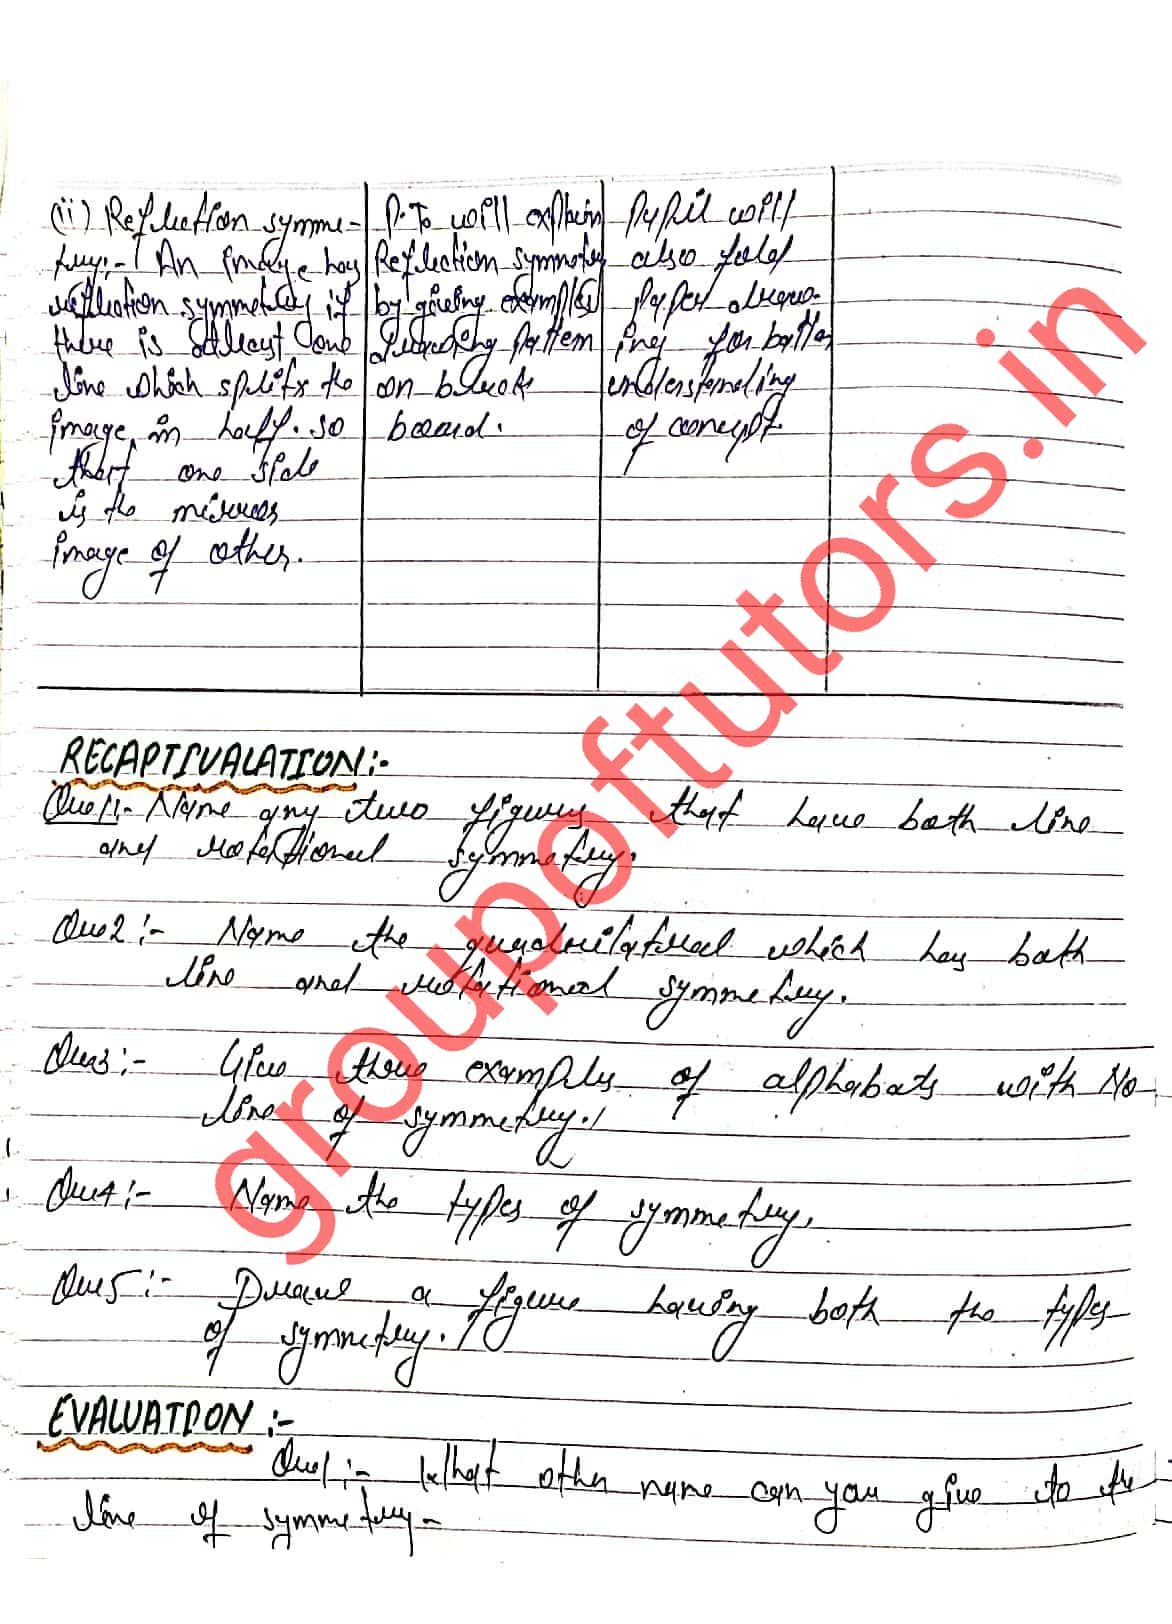 (ii) Reflection symme-
try:- An image has
reflection symmetry if
there is atleast one
line which splits the
image in half. so
that one side
is the mirror
image of other.
P.T. will explain
Reflection symmetry
by giving examples
drawing pattern
on black
board.
Pupil will
also fold
paper
ing for better
understanding
of concept.
RECAPTIUALATION:-
Que 1:- Name any two figures that have both line
and rotational symmetry.
Que2:- Name the quadrilateral which has both
line and rotational symmetry.
Que3:- Give three examples of alphabats with No
line of symmetry.
Que4:- Name the types of symmetry.
Que5:- Draw a figure having both the types
of symmetry.
EVALUATION:-
Que1:- What other name can you give to the
line of symmetry-
groupoftutors.in